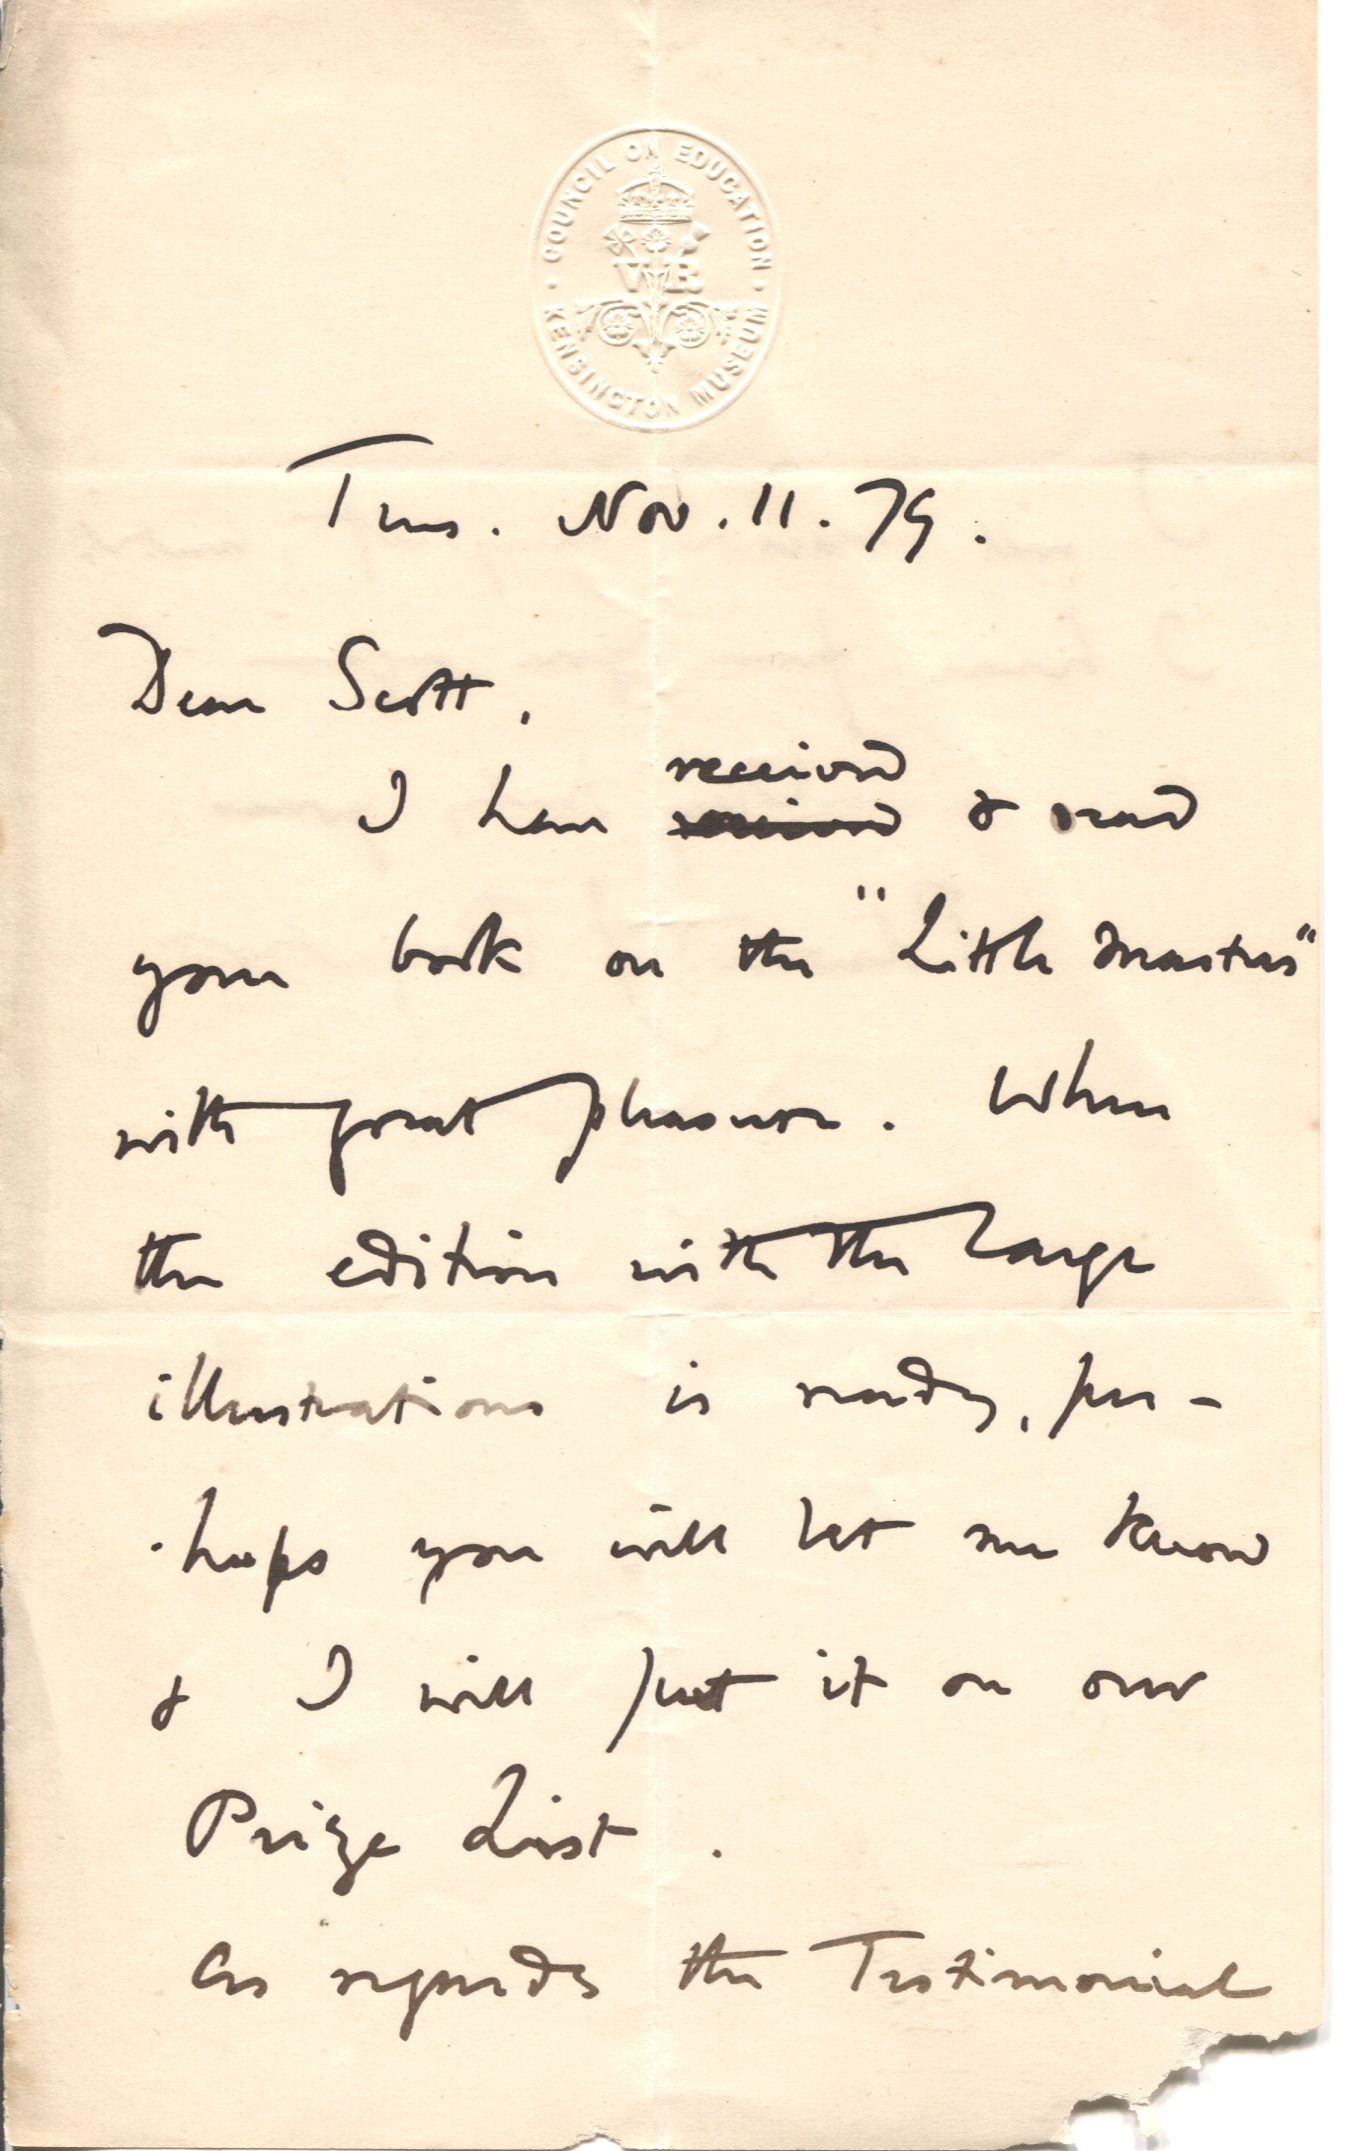 · COUNCIL ON EDUCATION · KENSINGTON MUSEUM
VR
Tues. Nov. 11. 79.
Dear Scott,
received
I have received & read
your book on the "Little Masters"
with great pleasure. When
the edition with the large
illustrations is ready, per-
-haps you will let me know
& I will put it on our
Prize List.
As regards the Testimonial